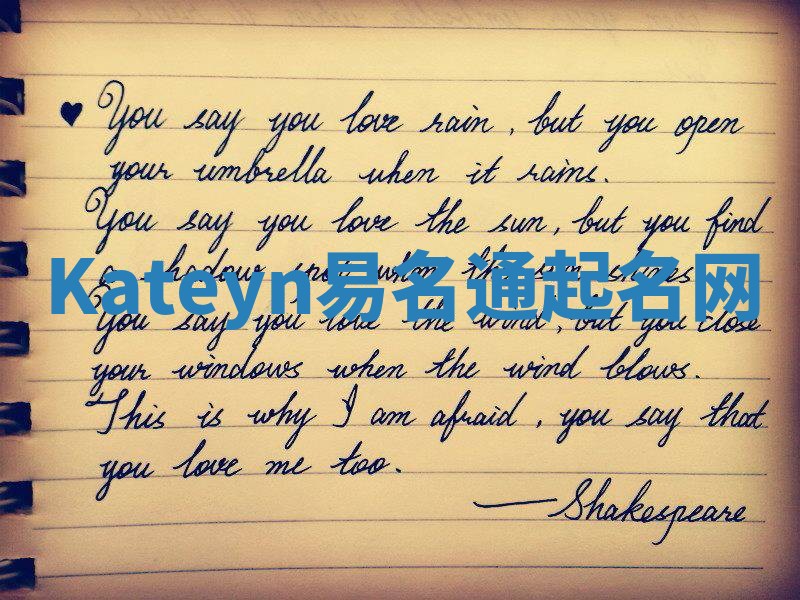 ♥ You say you love rain, but you open
your umbrella when it rains.
You say you love the sun, but you find
a shadow spot when the sun shines
Kateyn易名通起名网
You say you love the wind, but you close
your windows when the wind blows.
This is why I am afraid, you say that
you love me too.
—Shakespeare